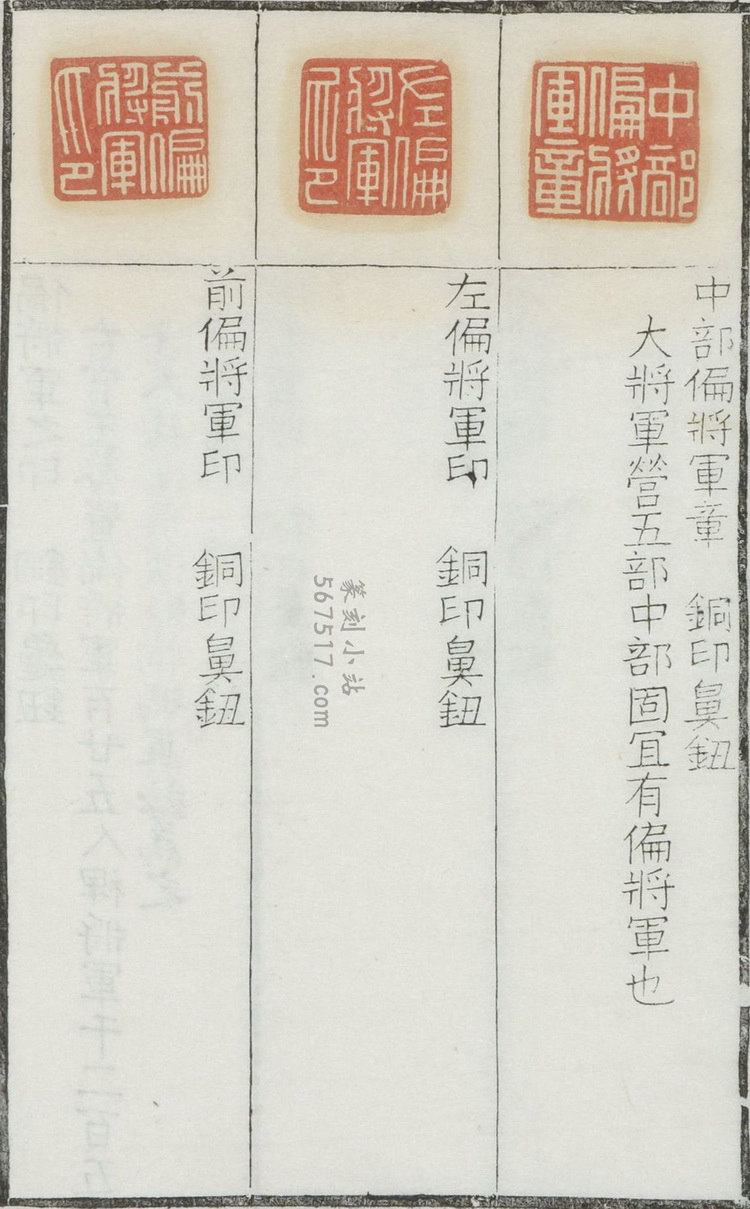 中部偏將軍章
中部偏將軍章 銅印鼻鈕
大將軍營五部中部固宜有偏將軍也
左偏將軍之印
左偏將軍印 銅印鼻鈕
前偏將軍印 銅印鼻鈕
篆刻小站
567517.com